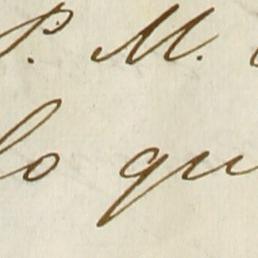 P. M.
lo qu